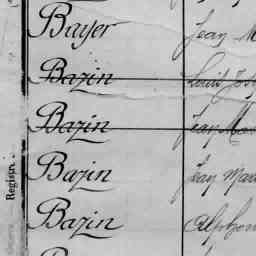 Bayer Jean M
Bazin Louis Jos
Bazin Jean Ma
Bazin Jean Mar
Bazin Alphon
Registr